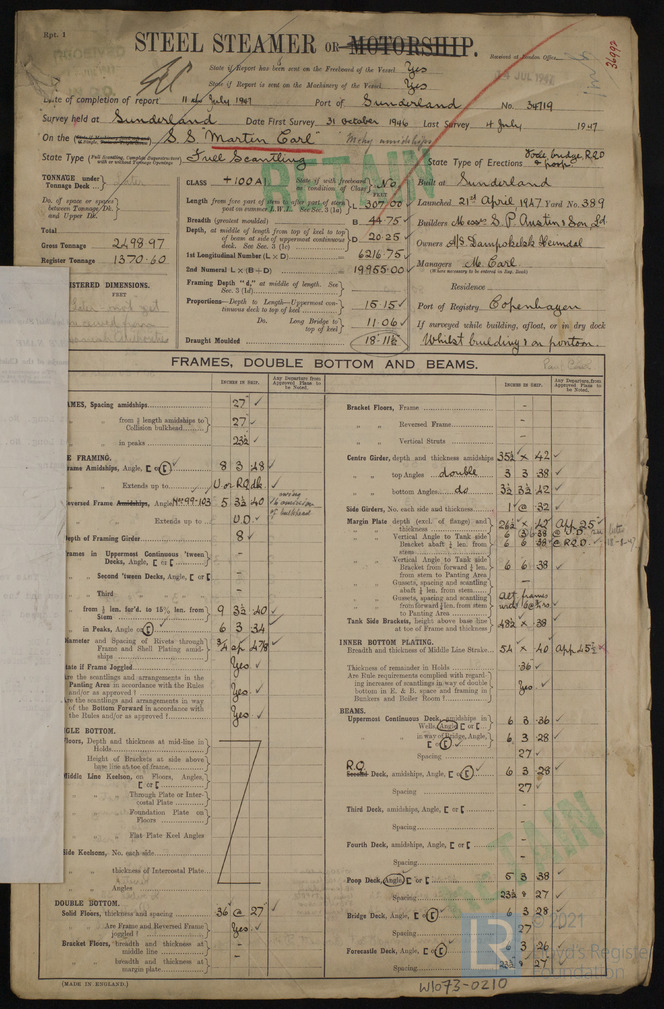 Rpt. 1
STEEL STEAMER OR MOTORSHIP.
Received at London Office
JUL 1947
36992
State if Report has been sent on the Freeboard of the Vessel Yes
State if Report is sent on the Machinery of the Vessel Yes
Date of completion of report 11th July 1947 Port of Sunderland No. 34719
Survey held at Sunderland Date First Survey 31 October 1946 Last Survey 4 July 1947
On the S.S. "Martin Carl" Mchy amidships
State Type Full Scantling
State Type of Erections Poop, bridge, RQD
RETAIN
TONNAGE under Tonnage Deck
Do. of space or spaces between Tonnage Dk. and Upper Dk.
Total
Gross Tonnage 2498.97
Register Tonnage 1370.60
REGISTERED DIMENSIONS.
FEET
CLASS +100A1 State if with freeboard as condition of Class No
FEET
Length from fore part of stem to after part of stern post on summer L.W.L. See Sec. 3 (1a) L 307.00
Breadth (greatest moulded) B 44.75
Depth, at middle of length from top of keel to top of beam at side of uppermost continuous deck. See Sec. 3 (1c) D 20.25
1st Longitudinal Number (L × D) 6216.75
2nd Numeral L × (B + D) 19955.00
Framing Depth "d," at middle of length. See Sec. 3 (1d)
Proportions—Depth to Length—Uppermost continuous deck to top of keel 15.15
Do. Long Bridge to top of keel 11.06
Draught Moulded 18.11½
Built at Sunderland
Launched 21st April 1947 Yard No. 389
Builders Messrs S. P. Austin & Son Ld
Owners A/S Dampskibsk Heimdal
Managers M. Carl
(Where necessary to be entered in Reg. Book)
Residence
Port of Registry Copenhagen
If surveyed while building, afloat, or in dry dock
Whilst building & on pontoon
FRAMES, DOUBLE BOTTOM AND BEAMS.
INCHES IN SHIP.
Any Departure from Approved Plans to be Noted.
INCHES IN SHIP.
Any Departure from Approved Plans to be Noted.
AMES, Spacing amidships 27
" " from ⅕ length amidships to Collision bulkhead 27
" " in peaks 23½
E FRAMING.
rame Amidships, Angle, [ or [ 8 3 .48
" " Extends up to U or RQ dk
eversed Frame Amidships, Angle Nos 99-103 5 3½ .40
" " Extends up to U.D.
epth of Framing Girder 8
rames in Uppermost Continuous 'tween Decks, Angle, [ or [ -
" Second 'tween Decks, Angle, [ or [ -
" Third " " " " -
" from ⅕ len. for'd. to 15% len. from Stem 9 3½ .40
" in Peaks, Angle or [ 6 3 .34
iameter and Spacing of Rivets through Frame and Shell Plating amidships ¾ ap 4⅞
tate if Frame Joggled Yes
re the scantlings and arrangements in the Panting Area in accordance with the Rules and/or as approved ? Yes
re the scantlings and arrangements in way of the Bottom Forward in accordance with the Rules and/or as approved ? Yes
GLE BOTTOM.
loors, Depth and thickness at mid-line in Holds
Height of Brackets at side above base line at toe of frame
iddle Line Keelson, on Floors, Angles, [ or [
" " Through Plate or Intercostal Plate
" " Foundation Plate on Floors
" " Flat Plate Keel Angles
ide Keelsons, No. each side
" " thickness of Intercostal Plate
" " Angles
DOUBLE BOTTOM.
Solid Floors, thickness and spacing .36 @ 27
" " Are Frame and Reversed Frame joggled ? Yes
Bracket Floors, breadth and thickness at middle line -
" " breadth and thickness at margin plate -
Bracket Floors, Frame -
" " Reversed Frame -
" " Vertical Struts -
Centre Girder, depth and thickness amidships 35½ × .42
" " top Angles double 3 3 .38
" " bottom Angles do 3½ 3½ .42
Side Girders, No. each side and thickness 1 @ .32
Margin Plate depth (excl. of flange) and thickness 26½ × .42 App .25
" " Vertical Angle to Tank side Bracket abaft ¼ len. from stem 6 6 .38 @ R.Q.D.
" " Vertical Angle to Tank side Bracket from forward ¼ len. from stem to Panting Area 6 6 .38
" " Gussets, spacing and scantling abaft ¼ len. from stem -
" " Gussets, spacing and scantling from forward ¼ len. from stem to Panting Area alt frames
Tank Side Brackets, height above base line at toe of Frame and thickness 48½ × .38
INNER BOTTOM PLATING.
Breadth and thickness of Middle Line Strake 54 × .40
Thickness of remainder in Holds .36
Are Rule requirements complied with regarding increases of scantlings in way of double bottom in E. & B. space and framing in Bunkers and Boiler Room ? Yes
BEAMS.
Uppermost Continuous Deck, amidships in Wells, Angle, [ or [ 6 3 .36
" " in way of Bridge, Angle, [ or [ 6 3 .28
" " Spacing 27
R.Q. Second Deck, amidships, Angle, [ or [ 6 3 .28
" " Spacing 27
Third Deck, amidships, Angle, [ or [ -
" " Spacing -
Fourth Deck, amidships, Angle, [ or [ -
" " Spacing -
Poop Deck, Angle, [ or [ 5 3 .38
" " Spacing 23½ & 27
Bridge Deck, Angle, [ or [ 6 3 .28
" " Spacing 27
Forecastle Deck, Angle, [ or [ 6 3 .26
" " Spacing 23½ & 27
RETAIN
(MADE IN ENGLAND.)
W1073-0210
© 2021
Lloyd's Register
Foundation
LR